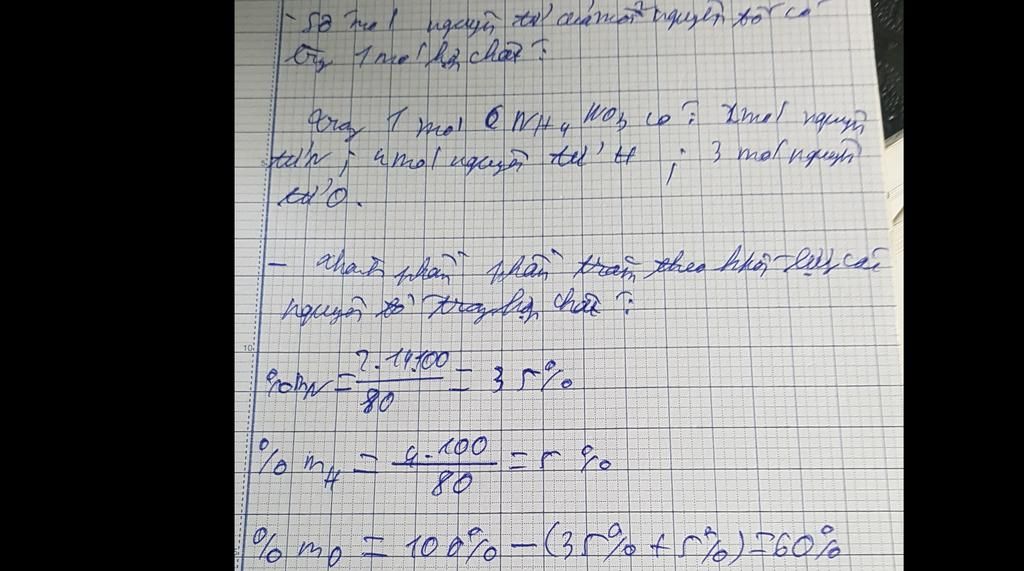 - Số mol nguyên tử của mỗi nguyên tố có
trg 1 mol hợp chất :
trog 1 mol NH₄NO₃ có : 2mol nguyên
tử N ; 4 mol nguyên tử H ; 3 mol nguyên
tử O.
- thành phần phần trăm theo khối lượg các
nguyên tố trog hợp chất :
10
%mN = 2.14.100 / 80 = 35%
% mH = 4.100 / 80 = 5 %
% mO = 100% - (35% + 5%) = 60%